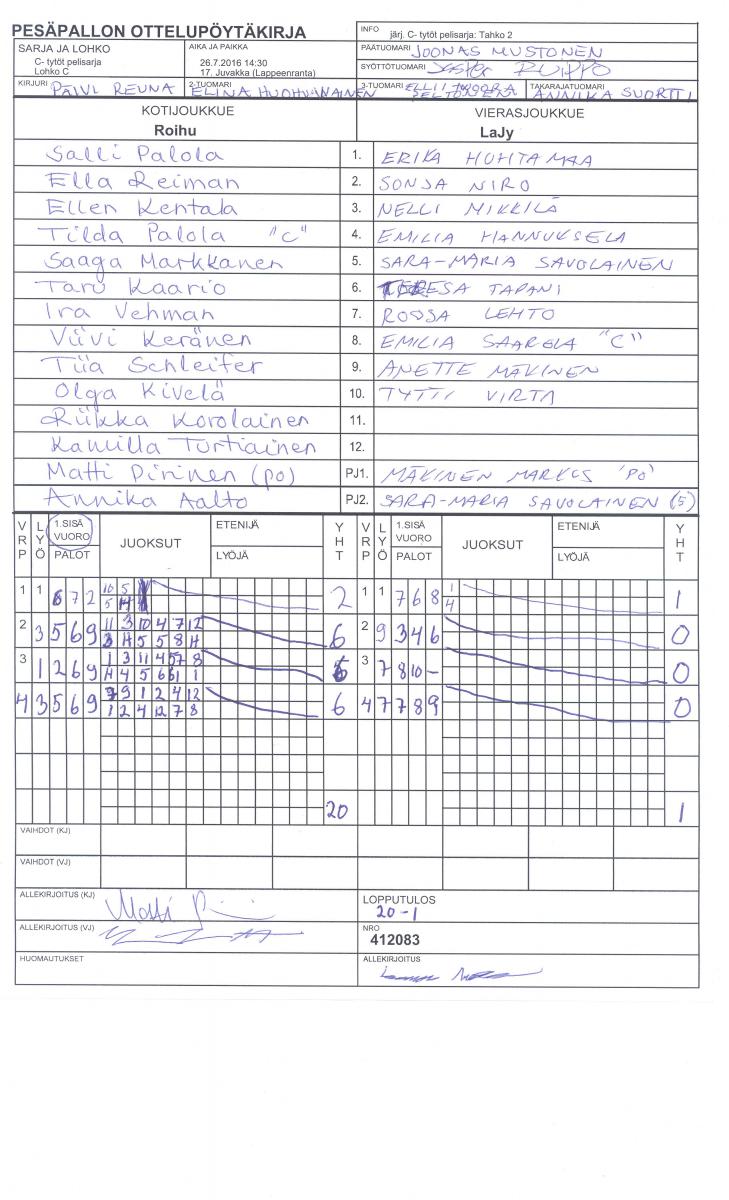 PESÄPALLON OTTELUPÖYTÄKIRJA
INFO järj. C- tytöt pelisarja: Tahko 2
SARJA JA LOHKO
C- tytöt pelisarja
Lohko C
AIKA JA PAIKKA
26.7.2016 14:30
17, Juvakka (Lappeenranta)
PÄÄTUOMARI JOONAS MUSTONEN
SYÖTTÖTUOMARI
KIRJURI PÄIVI REUNA
2-TUOMARI ELINA HUOHVANAINEN
3-TUOMARI
TAKARAJATUOMARI ANNIKA SUORTTI
KOTIJOUKKUE
Roihu
VIERASJOUKKUE
LaJy
Salli Palola 1. ERIKA HUHTAMAA
Ella Reiman 2. SONJA NIRO
Ellen Kentala 3. NELLI MIKKILÄ
Tilda Palola "C" 4. EMILIA HANNUKSELA
Saaga Markkanen 5. SARA-MARIA SAVOLAINEN
Taru Kaario 6. TERESA TAPANI
Ira Vehman 7. ROOSA LEHTO
Viivi Keränen 8. EMILIA SAARELA "C"
Tiia Schleifer 9. ANETTE MÄKINEN
Olga Kivelä 10. TYTTI VIRTA
Riikka Korolainen 11.
Kamilla Turtiainen 12.
Matti Pirinen (po) PJ1. MÄKINEN MARKUS 'PO'
Annika Aalto PJ2. SARA-MARIA SAVOLAINEN (5)
VRP LYÖ 1.SISÄ VUORO PALOT JUOKSUT ETENIJÄ LYÖJÄ YHT VRP LYÖ 1.SISÄ VUORO PALOT JUOKSUT ETENIJÄ LYÖJÄ YHT
1 1 6 7 2 10 5 2 1 1 7 6 8 1 1
5 4
2 3 5 6 9 11 3 10 4 7 12 6 2 9 3 4 6 0
3 4 5 5 8 11
3 1 2 6 9 1 3 11 4 5 7 8 3 7 8 10 - 0
4 3 5 6 9 9 1 2 4 12 6 4 7 7 8 9 0
1 2 4 12 7 8
20 1
VAIHDOT (KJ)
VAIHDOT (VJ)
ALLEKIRJOITUS (KJ) Matti
LOPPUTULOS
20-1
ALLEKIRJOITUS (VJ)
NRO
412083
HUOMAUTUKSET
ALLEKIRJOITUS